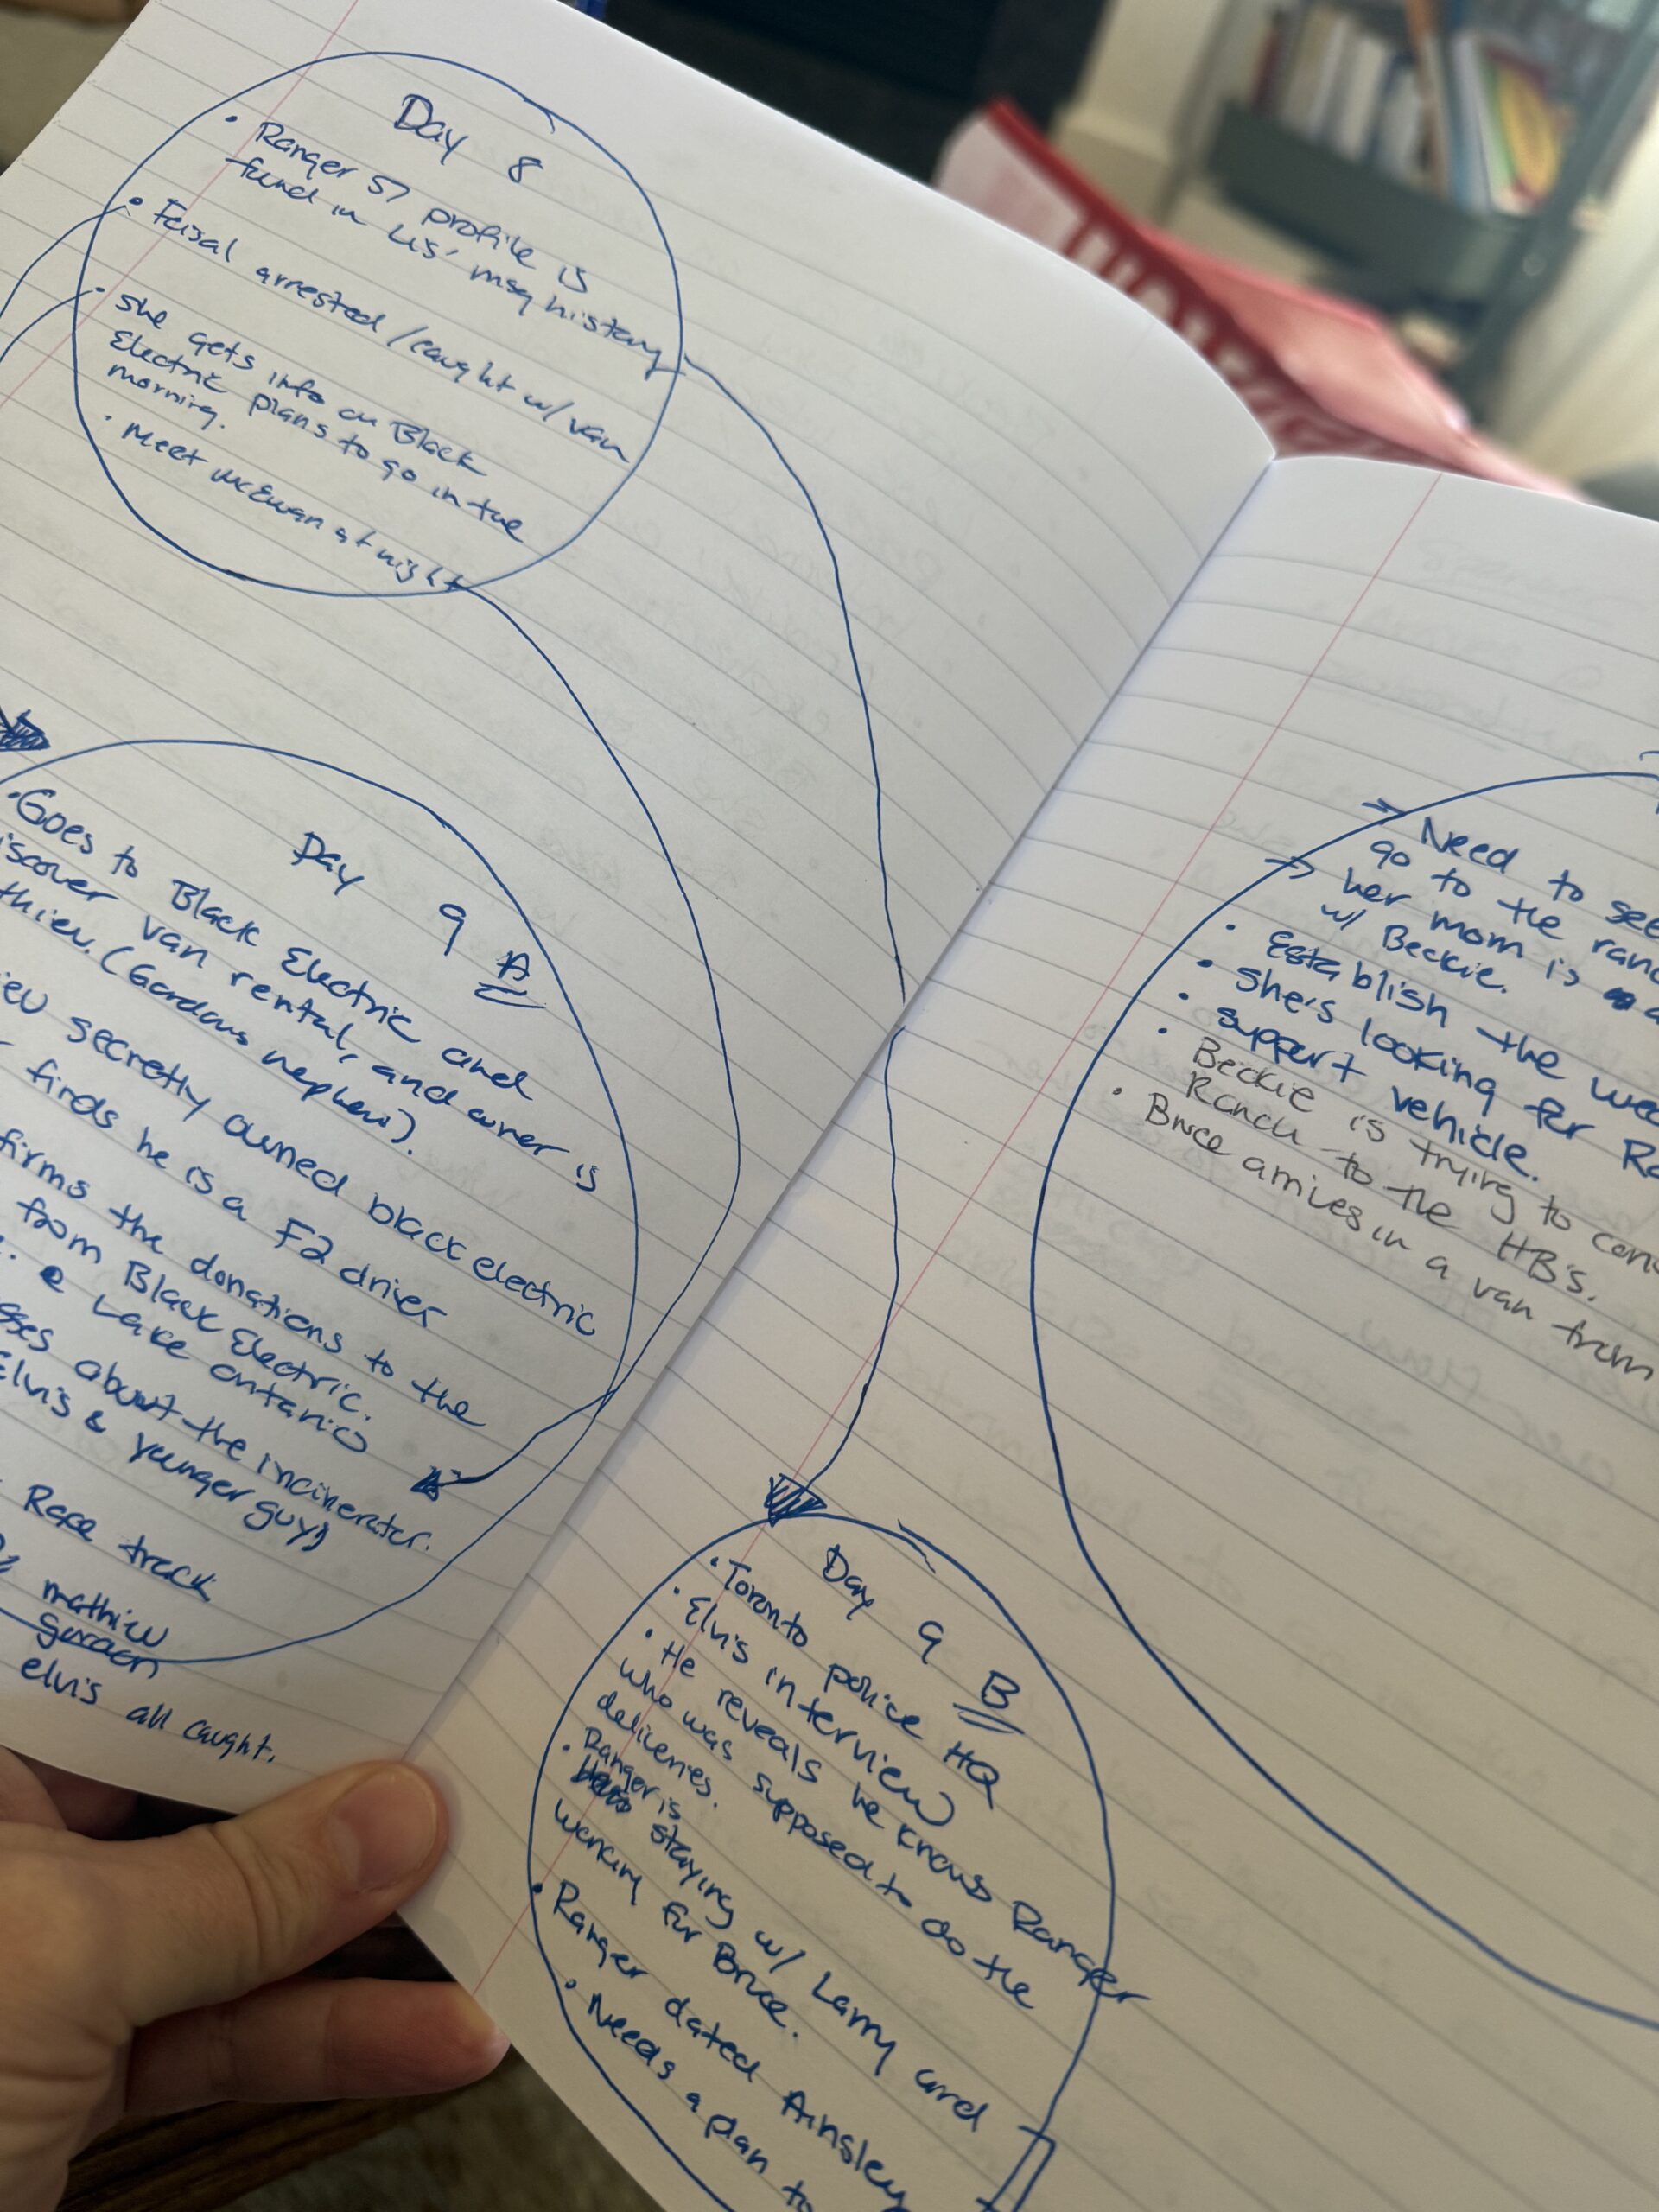 Day 8
• Ranger 57 profile is
found in Lis' msg history
• Feisal arrested / caught w/ van
• she gets info on Black
Electric plans to go in the
morning.
• Meet McEwan at night
Day 9 A
• Goes to Black Electric and
van rental, and owner is
(Gordons nephew).
secretly owned black electric
finds he is a F2 driver
the donations to the
from Black Electric.
e Lake ontario
about the incinerator.
Elvis & younger guy)
Race track
mathieu
Gordon
elvis all caught.
Day 9 B
• Toronto police HQ
• Elvis interview
• He reveals he knows Ranger
who was supposed to do the
deliveries.
• Ranger is
staying w/ Larry and
working for Bruce.
• Ranger dated Ainsley
• Needs a plan to
Need to see
go to the
her mom is
w/ Beckie.
• Establish the
• she's looking for
• support vehicle.
• Beckie is trying to
Ranch to the HB's.
• Bruce arrives in a van from